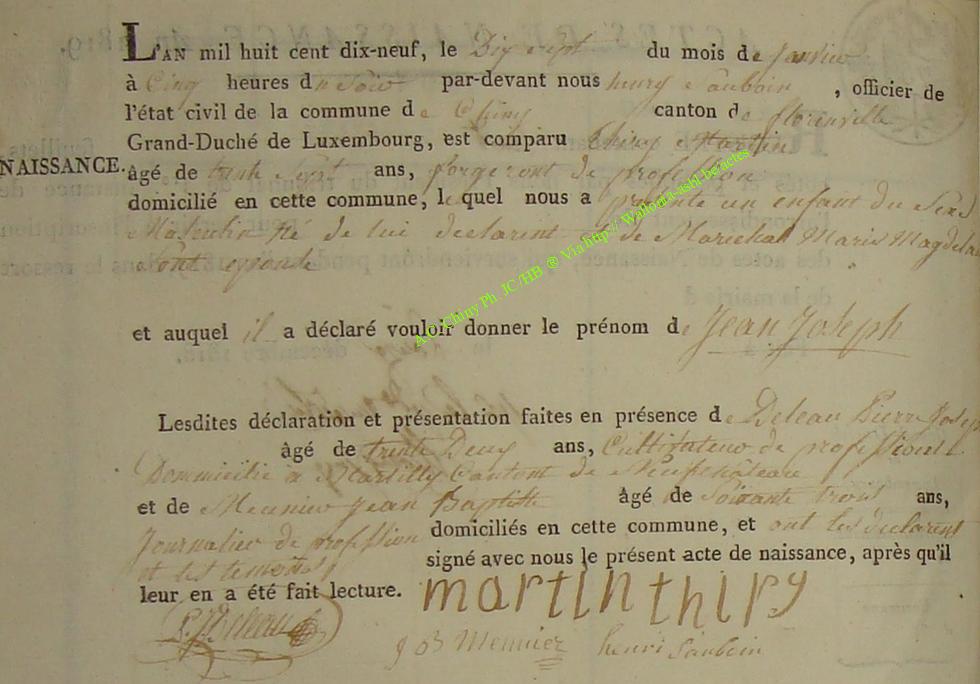 L'AN mil huit cent dix-neuf, le Dix Sept du mois de Janvier
à Cinq heures du Soir par-devant nous henry Sauboin, officier de
l'état civil de la commune de Chiny canton de florenville
Grand-Duché de Luxembourg, est comparu Thiry Martin
NAISSANCE.
âgé de trente Sept ans, forgeront de profession
domicilié en cette commune, lequel nous a présenté un enfant du Sexe
Masculin Né de lui declarent et de Marechal Marie Magdelaine
Sont epouse
et auquel il a déclaré vouloir donner le prénom de Jean Joseph
Lesdites déclaration et présentation faites en présence de Deleau Pierre Joseph
âgé de trente Deux ans, Cultivateur de profession
Dommicilié à Martilly Cantont de Neufchateau
et de Meunier Jean Baptiste âgé de Soixante trois ans,
Journalier de profession domiciliés en cette commune, et ont les declarent
et les temoins signé avec nous le présent acte de naissance, après qu'il
leur en a été fait lecture.
martin thiry
P. J. Deleau
J B Meunier henri Sauboin
A.C. Chiny Ph. JC /HB @ Via http://Wallonia-asbl.be/actes